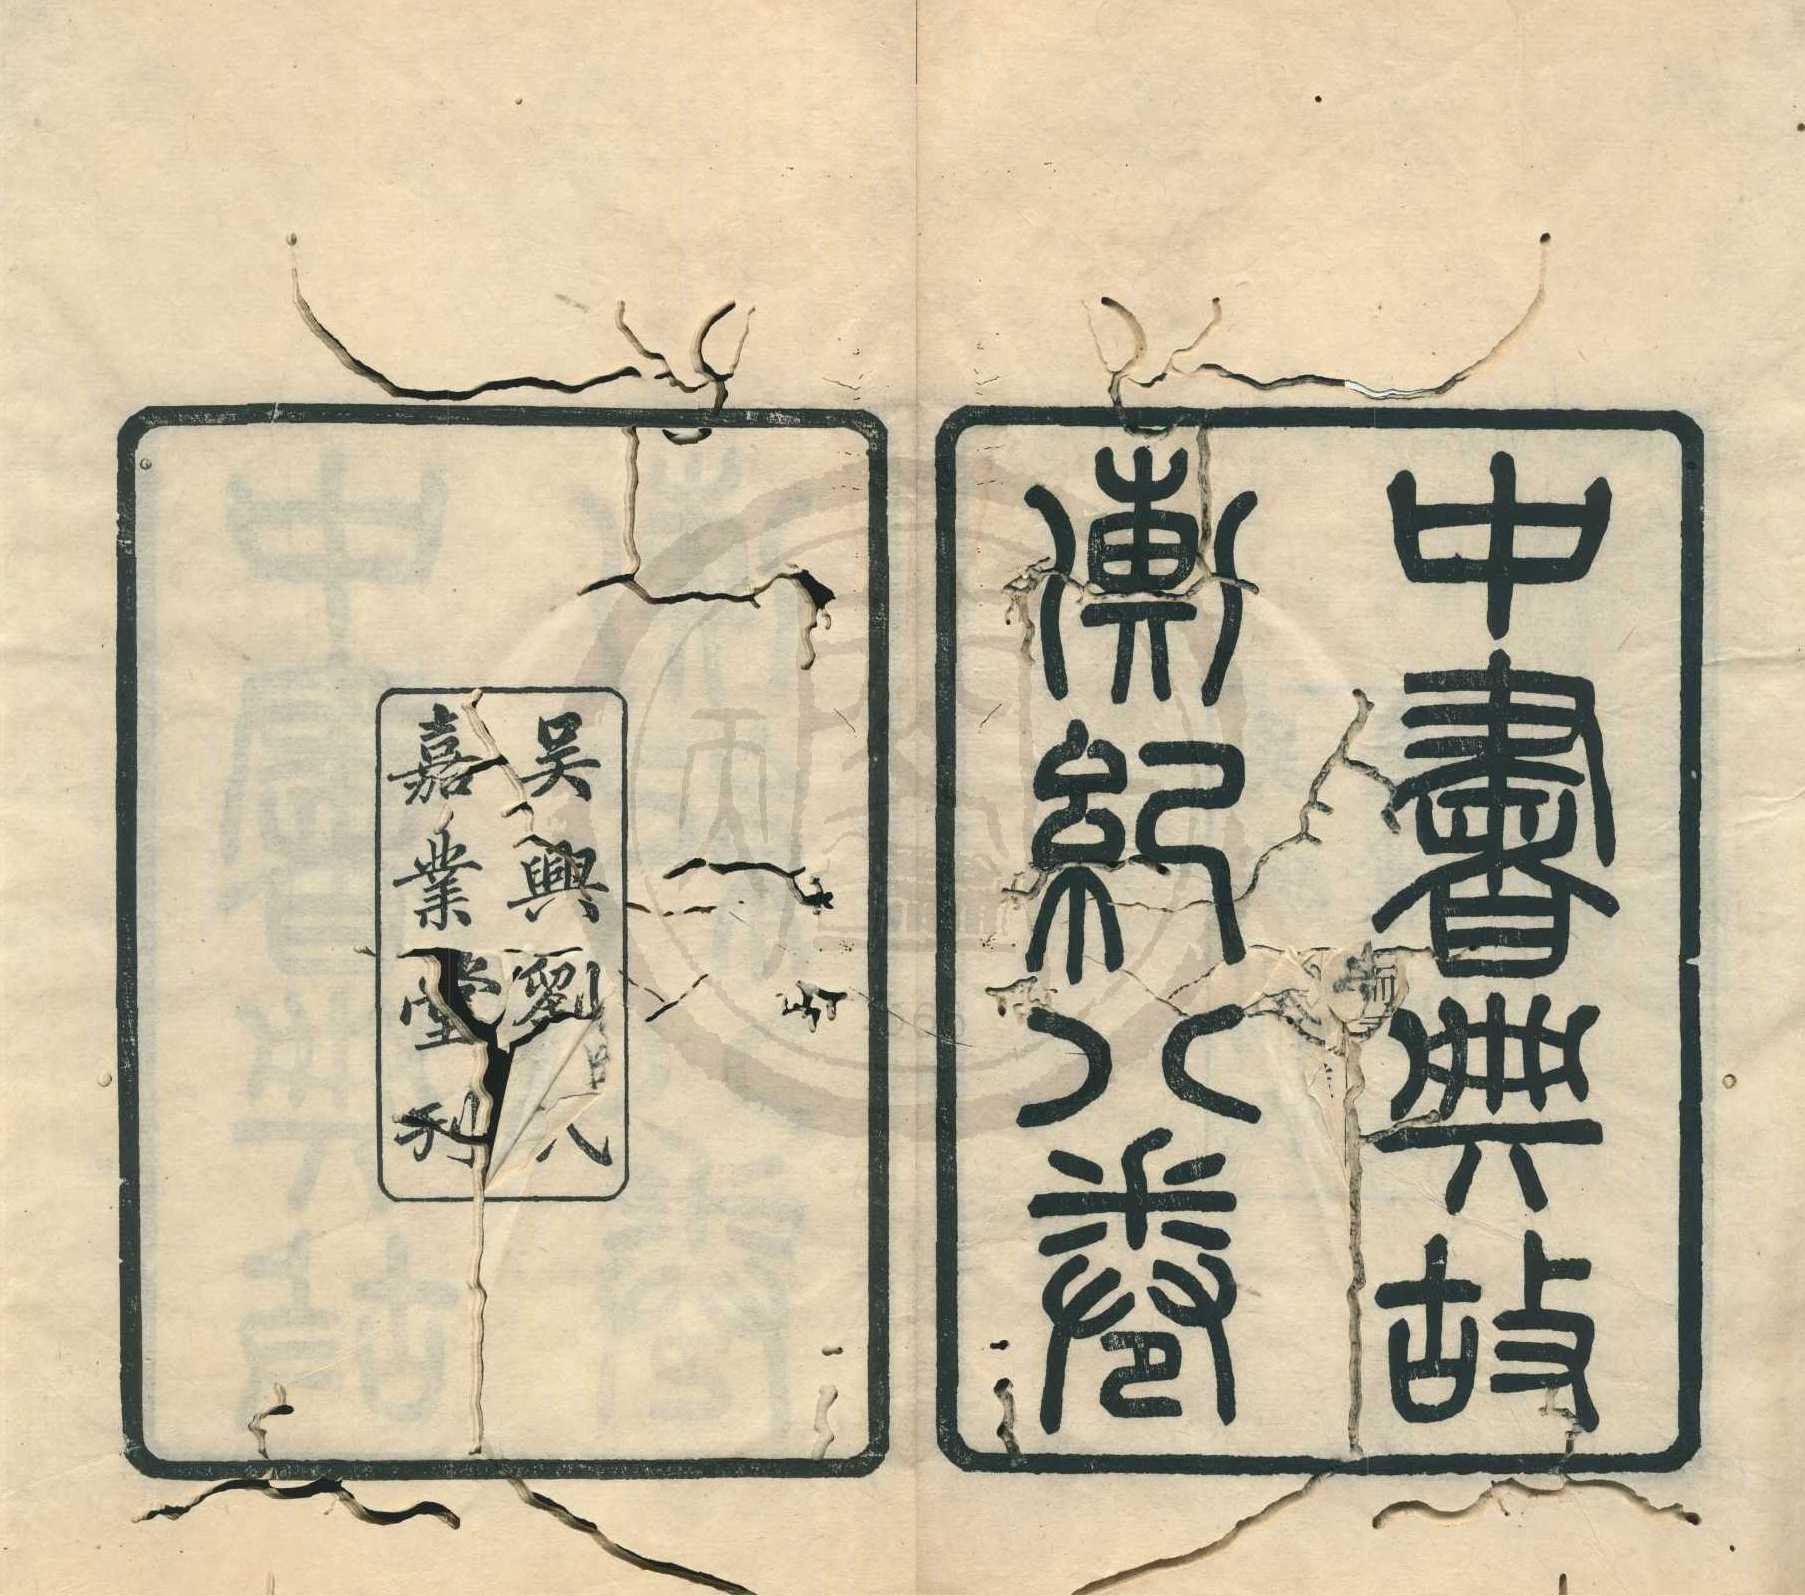 中書典故
彙紀八卷
吴興劉氏
嘉業堂刊